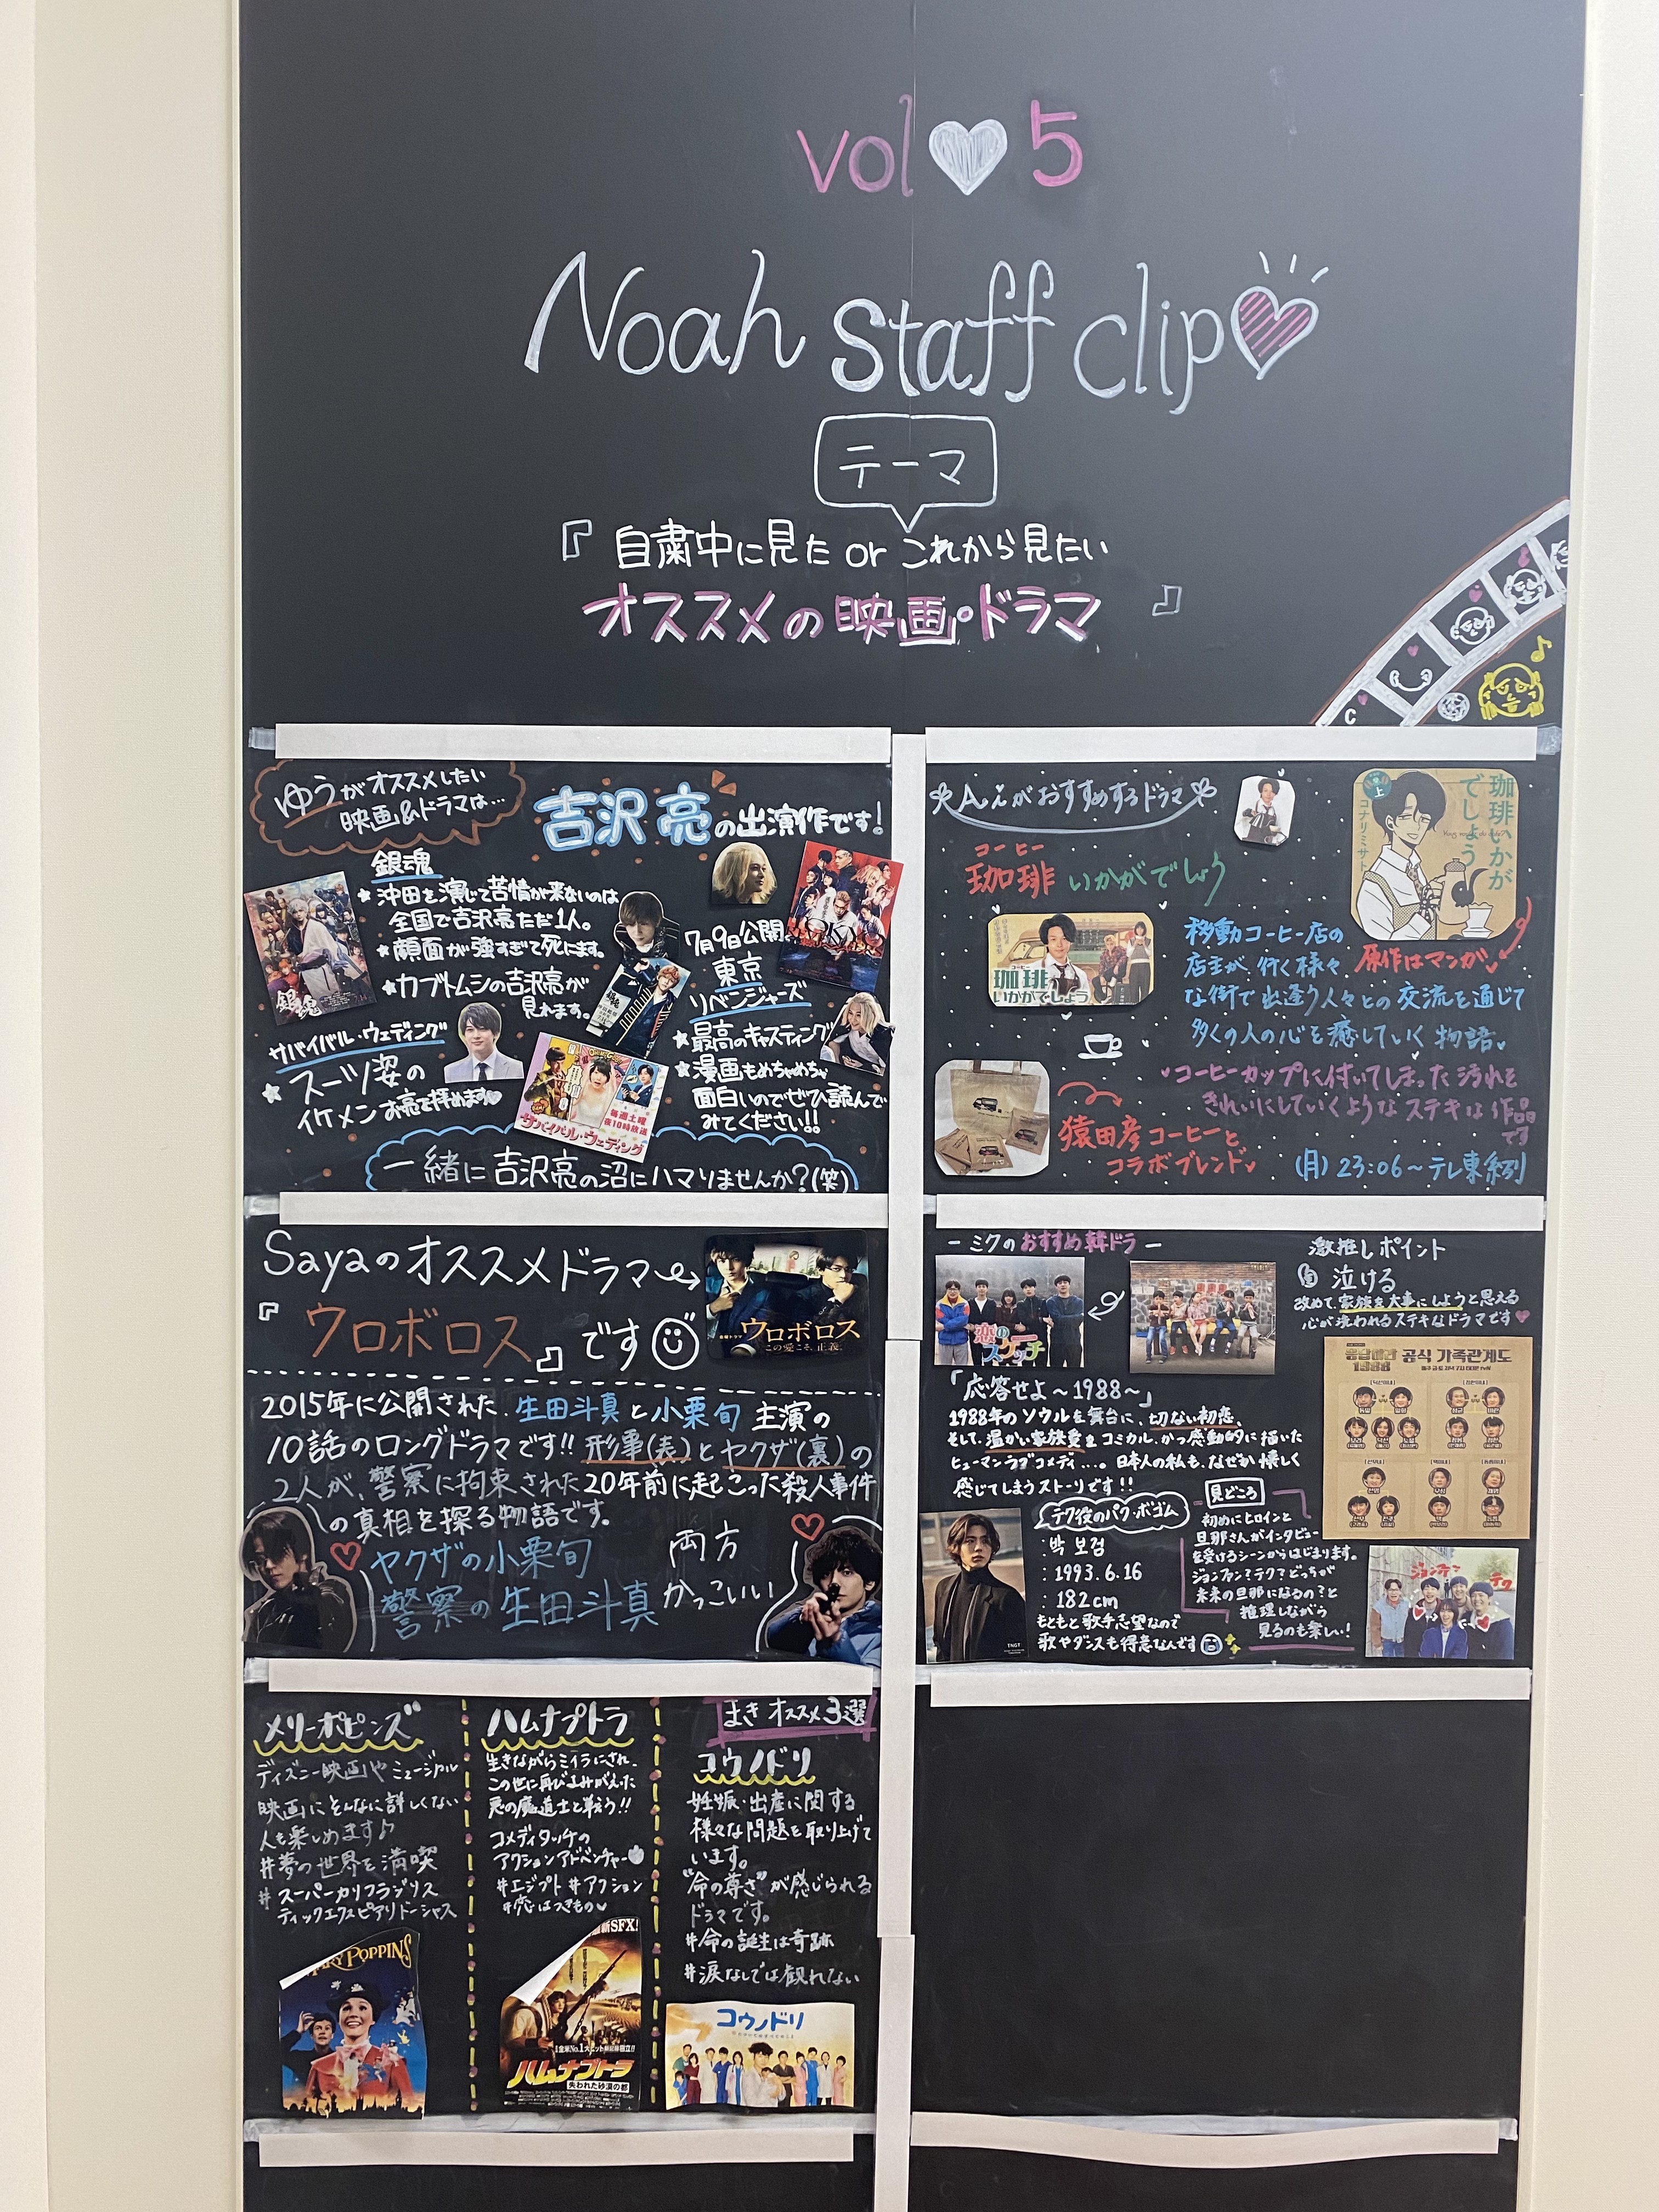 vol 5
Noah staff clip
テーマ
『自粛中に見た or これから見たい
オススメの映画・ドラマ』
ゆうがオススメしたい
映画&ドラマは…
吉沢 亮の出演作です!
銀魂
★沖田を演じて苦情が来ないのは
全国で吉沢亮ただ1人。
★顔面が強すぎて死にます。
★カブトムシの吉沢亮が
見れます。
銀魂
サバイバル・ウェディング
★スーツ姿の
イケメンお亮を拝めます
サバイバル・ウェディング
毎週土曜
夜10時放送
7月9日公開
東京
リベンジャーズ
★最高のキャスティング
★漫画もめちゃめちゃ
面白いのでぜひ読んで
みてください!!
一緒に吉沢亮の沼にハマりませんか?(笑)
がおすすめするドラマ
コーヒー
珈琲いかがでしょう
珈琲いかが
でしょう
上
コナリミサト
コーヒー
珈琲
いかがでしょう
原作はマンガ
移動コーヒー店の
店主が、行く様々
な街で出逢う人々との交流を通じて
多くの人の心を癒していく物語。
コーヒーカップに付いてしまった汚れを
きれいにしていくようなステキな作品
です
猿田彦コーヒーと
コラボブレンド
(月) 23:06〜テレ東系列
Sayaのオススメドラマ
『ウロボロス』です
ウロボロス
この愛こそ、正義。
2015年に公開された、生田斗真と小栗旬 主演の
10話のロングドラマです!! 形事(表)とヤクザ(裏)の
2人が、警察に拘束された20年前に起こった殺人事件
の真相を探る物語です。
ヤクザの小栗旬
警察の生田斗真
両方
かっこいい
ー ミクのおすすめ韓ドラ ー
恋の
スケッチ
激推しポイント
泣ける
改めて、家族を大事にしようと思える
心が洗われるステキなドラマです
「応答せよ〜1988〜」
1988年のソウルを舞台に、切ない初恋、
そして、温かい家族愛をコミカル、かつ感動的に描いた
ヒューマンラブコメディ…。日本人の私も、なぜか懐しく
感じてしまうストーリです!!
응답하라
1988 공식 가족관계도
テク役のパク・ボゴム
:박 보검
:1993.6.16
:182cm
もともと歌手志望なので
歌やダンスも得意なんです
見どころ
初めにヒロインと
旦那さんがインタビュー
を受けるシーンからはじまります。
ジョンファン?テク?どっちが
未来の旦那になるの?と
推理しながら
見るのも楽しい!
ジョンファン
テク
メリーポピンズ
ディズニー映画やミュージカル
映画にそんなに詳しくない
人も楽しめます♪
#夢の世界を満喫
#スーパーカリフラジリス
ティックエクスピアリドーシャス
POPPINS
ハムナプトラ
生きながらミイラにされ、
この世に再びよみがえった
悪の魔道士と戦う!!
コメディタッチの
アクションアドベンチャー
#エジプト #アクション
#恋はつきもの
新SFX!
ハムナプトラ
失われた砂漠の都
まき オススメ3選
コウノドリ
妊娠・出産に関する
様々な問題を取り上げて
います。
"命の尊さ"が感じられる
ドラマです。
#命の誕生は奇跡
#涙なしでは観れない
コウノドリ